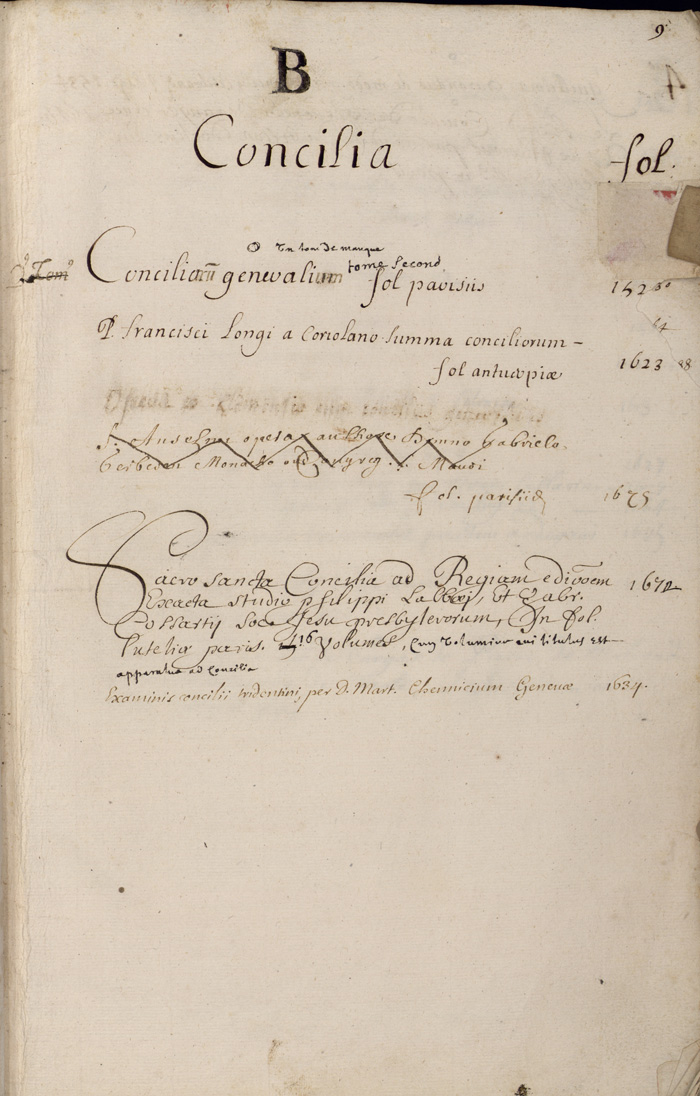 9
B
Concilia
fol.
Un tome de manque
tome second
Conciliorum generalium fol parisiis
P. francisci Longi a Coriolano Summa conciliorum -
fol antuerpiæ 1623
S. Anselmi opera authore Domno Gabriele
Gerberon Monacho congreg. S. Mauri
fol. parisiis 1675
Sacro sancta Concilia ad Regiam editionem 1672
Exacta studio philippi Labbæi, et Gabr.
Cossartij soc. Jesu presbyterorum, In fol.
Lutetiæ paris. 16 Volumes, Cum volumine cui titulus est
apparatus ad Concilia
Examinis concilii tridentini, per D. Mart. Chemnicium Genevæ 1634.